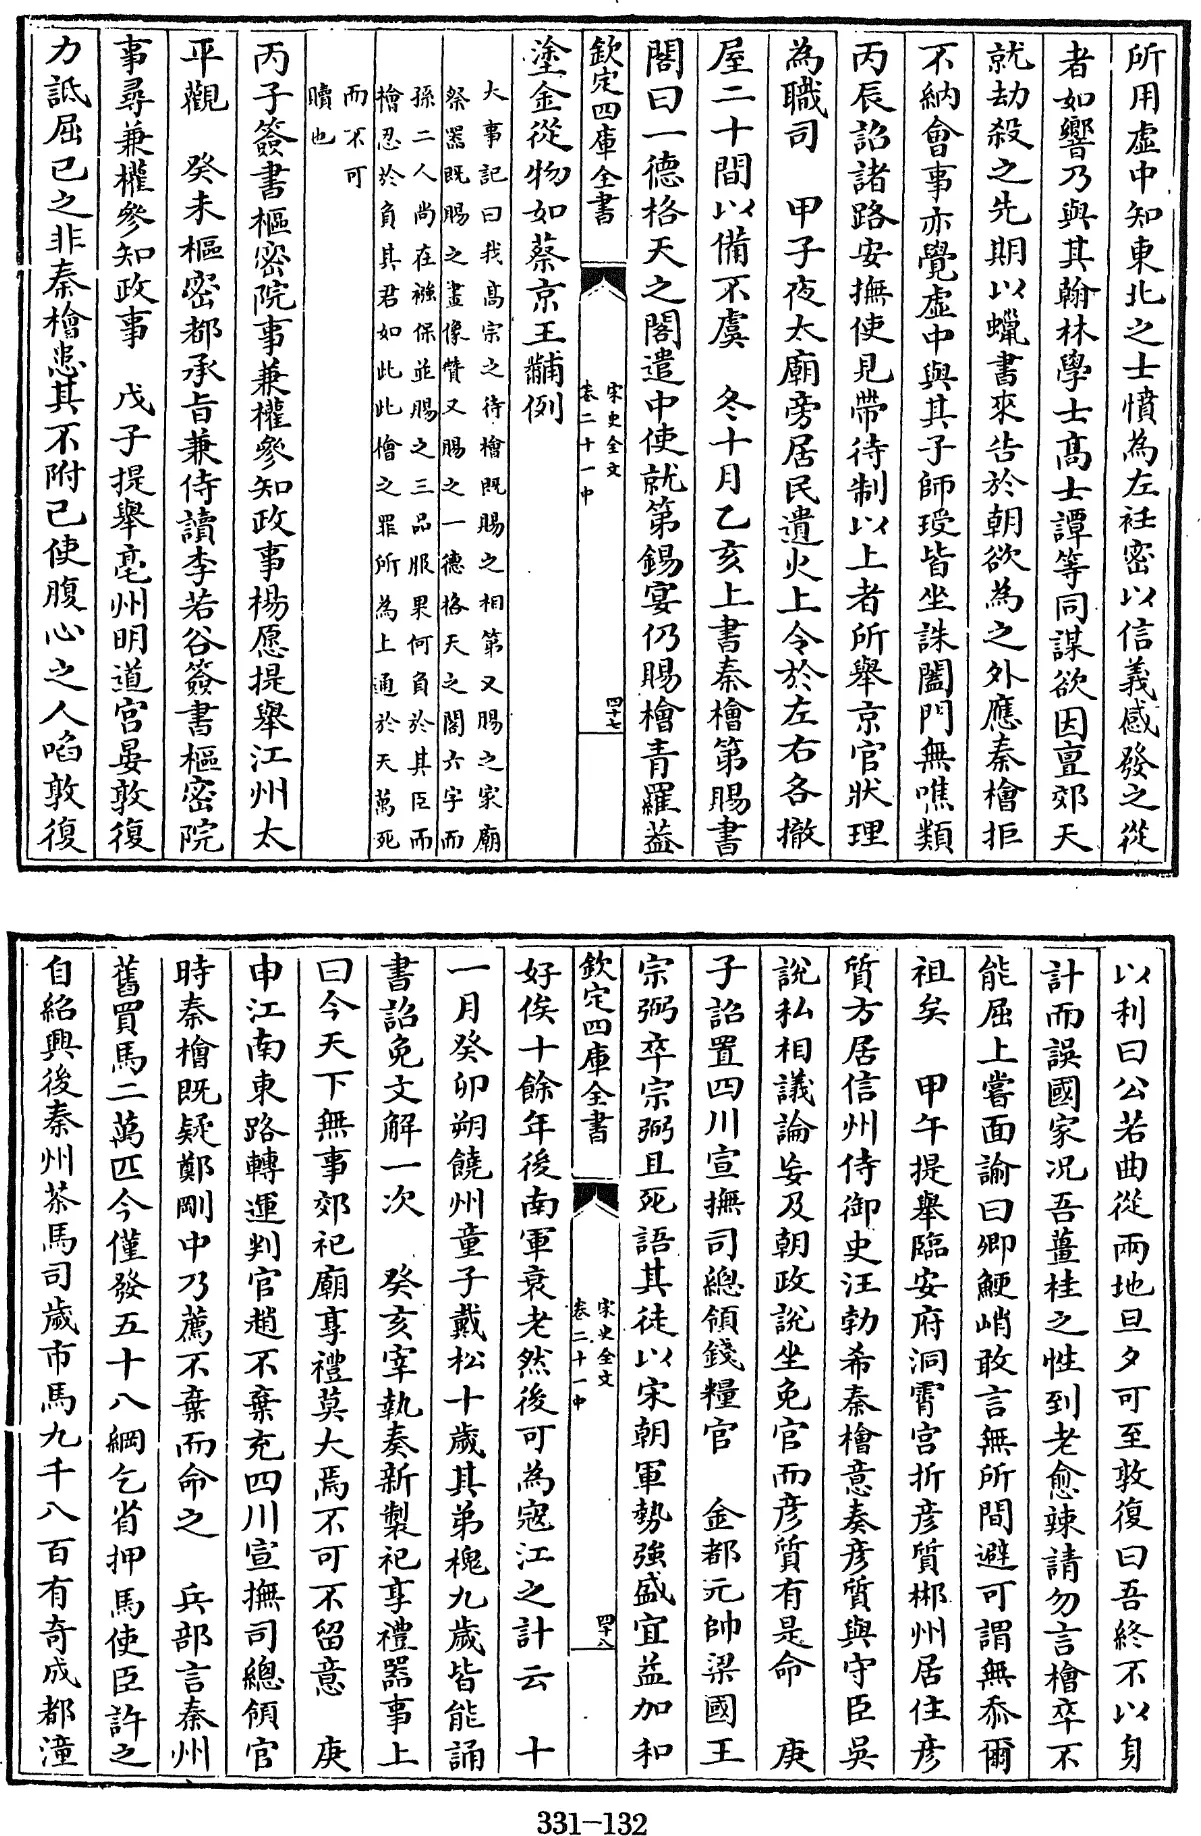 所用虛中知東北之士憤為左衽密以信義感發之從
者如響乃與其翰林學士髙士譚等同謀欲因亶郊天
就劫殺之先期以蠟書來告於朝欲為之外應秦檜拒
不納會事亦覺虛中與其子師瑗皆坐誅闔門無噍類
丙辰詔諸路安撫使見帶待制以上者所舉京官狀理
為職司　甲子夜太廟旁居民遺火上令於左右各撤
屋二十間以備不虞　冬十月乙亥上書秦檜第賜書
閣曰一德格天之閣遣中使就第錫宴仍賜檜青羅蓋
欽定四庫全書
宋史全文
卷二十一中
四十七
塗金從物如蔡京王黼例
大事記曰我髙宗之待檜既賜之相第又賜之家廟
祭器既賜之畫像贊又賜之一德格天之閣六字而
孫二人尚在襁保並賜之三品服果何負於其臣而
檜忍於負其君如此此檜之罪所為上通於天萬死
而不可
贖也
丙子簽書樞密院事兼權參知政事楊愿提舉江州太
平觀　癸未樞密都承旨兼侍讀李若谷簽書樞密院
事尋兼權參知政事　戊子提舉亳州明道宫晏敦復
力詆屈己之非秦檜患其不附己使腹心之人啗敦復
以利曰公若曲從兩地旦夕可至敦復曰吾終不以身
計而誤國家况吾薑桂之性到老愈辣請勿言檜卒不
能屈上嘗面諭曰卿鯁峭敢言無所間避可謂無忝爾
祖矣　甲午提舉臨安府洞霄宫折彦質郴州居住彦
質方居信州侍御史汪勃希秦檜意奏彦質與守臣吳
說私相議論妄及朝政說坐免官而彦質有是命　庚
子詔置四川宣撫司總領錢糧官　金都元帥梁國王
宗弼卒宗弼且死語其徒以宋朝軍勢強盛宜益加和
欽定四庫全書
宋史全文
卷二十一中
四十八
好俟十餘年後南軍衰老然後可為寇江之計云　十
一月癸卯朔饒州童子戴松十歲其弟槐九歲皆能誦
書詔免文解一次　癸亥宰執奏新製祀享禮器事上
曰今天下無事郊祀廟享禮莫大焉不可不留意　庚
申江南東路轉運判官趙不棄充四川宣撫司總領官
時秦檜既疑鄭剛中乃薦不棄而命之　兵部言秦州
舊買馬二萬匹今僅發五十八綱乞省押馬使臣許之
自紹興後秦州茶馬司歲市馬九千八百有奇成都潼
331-132